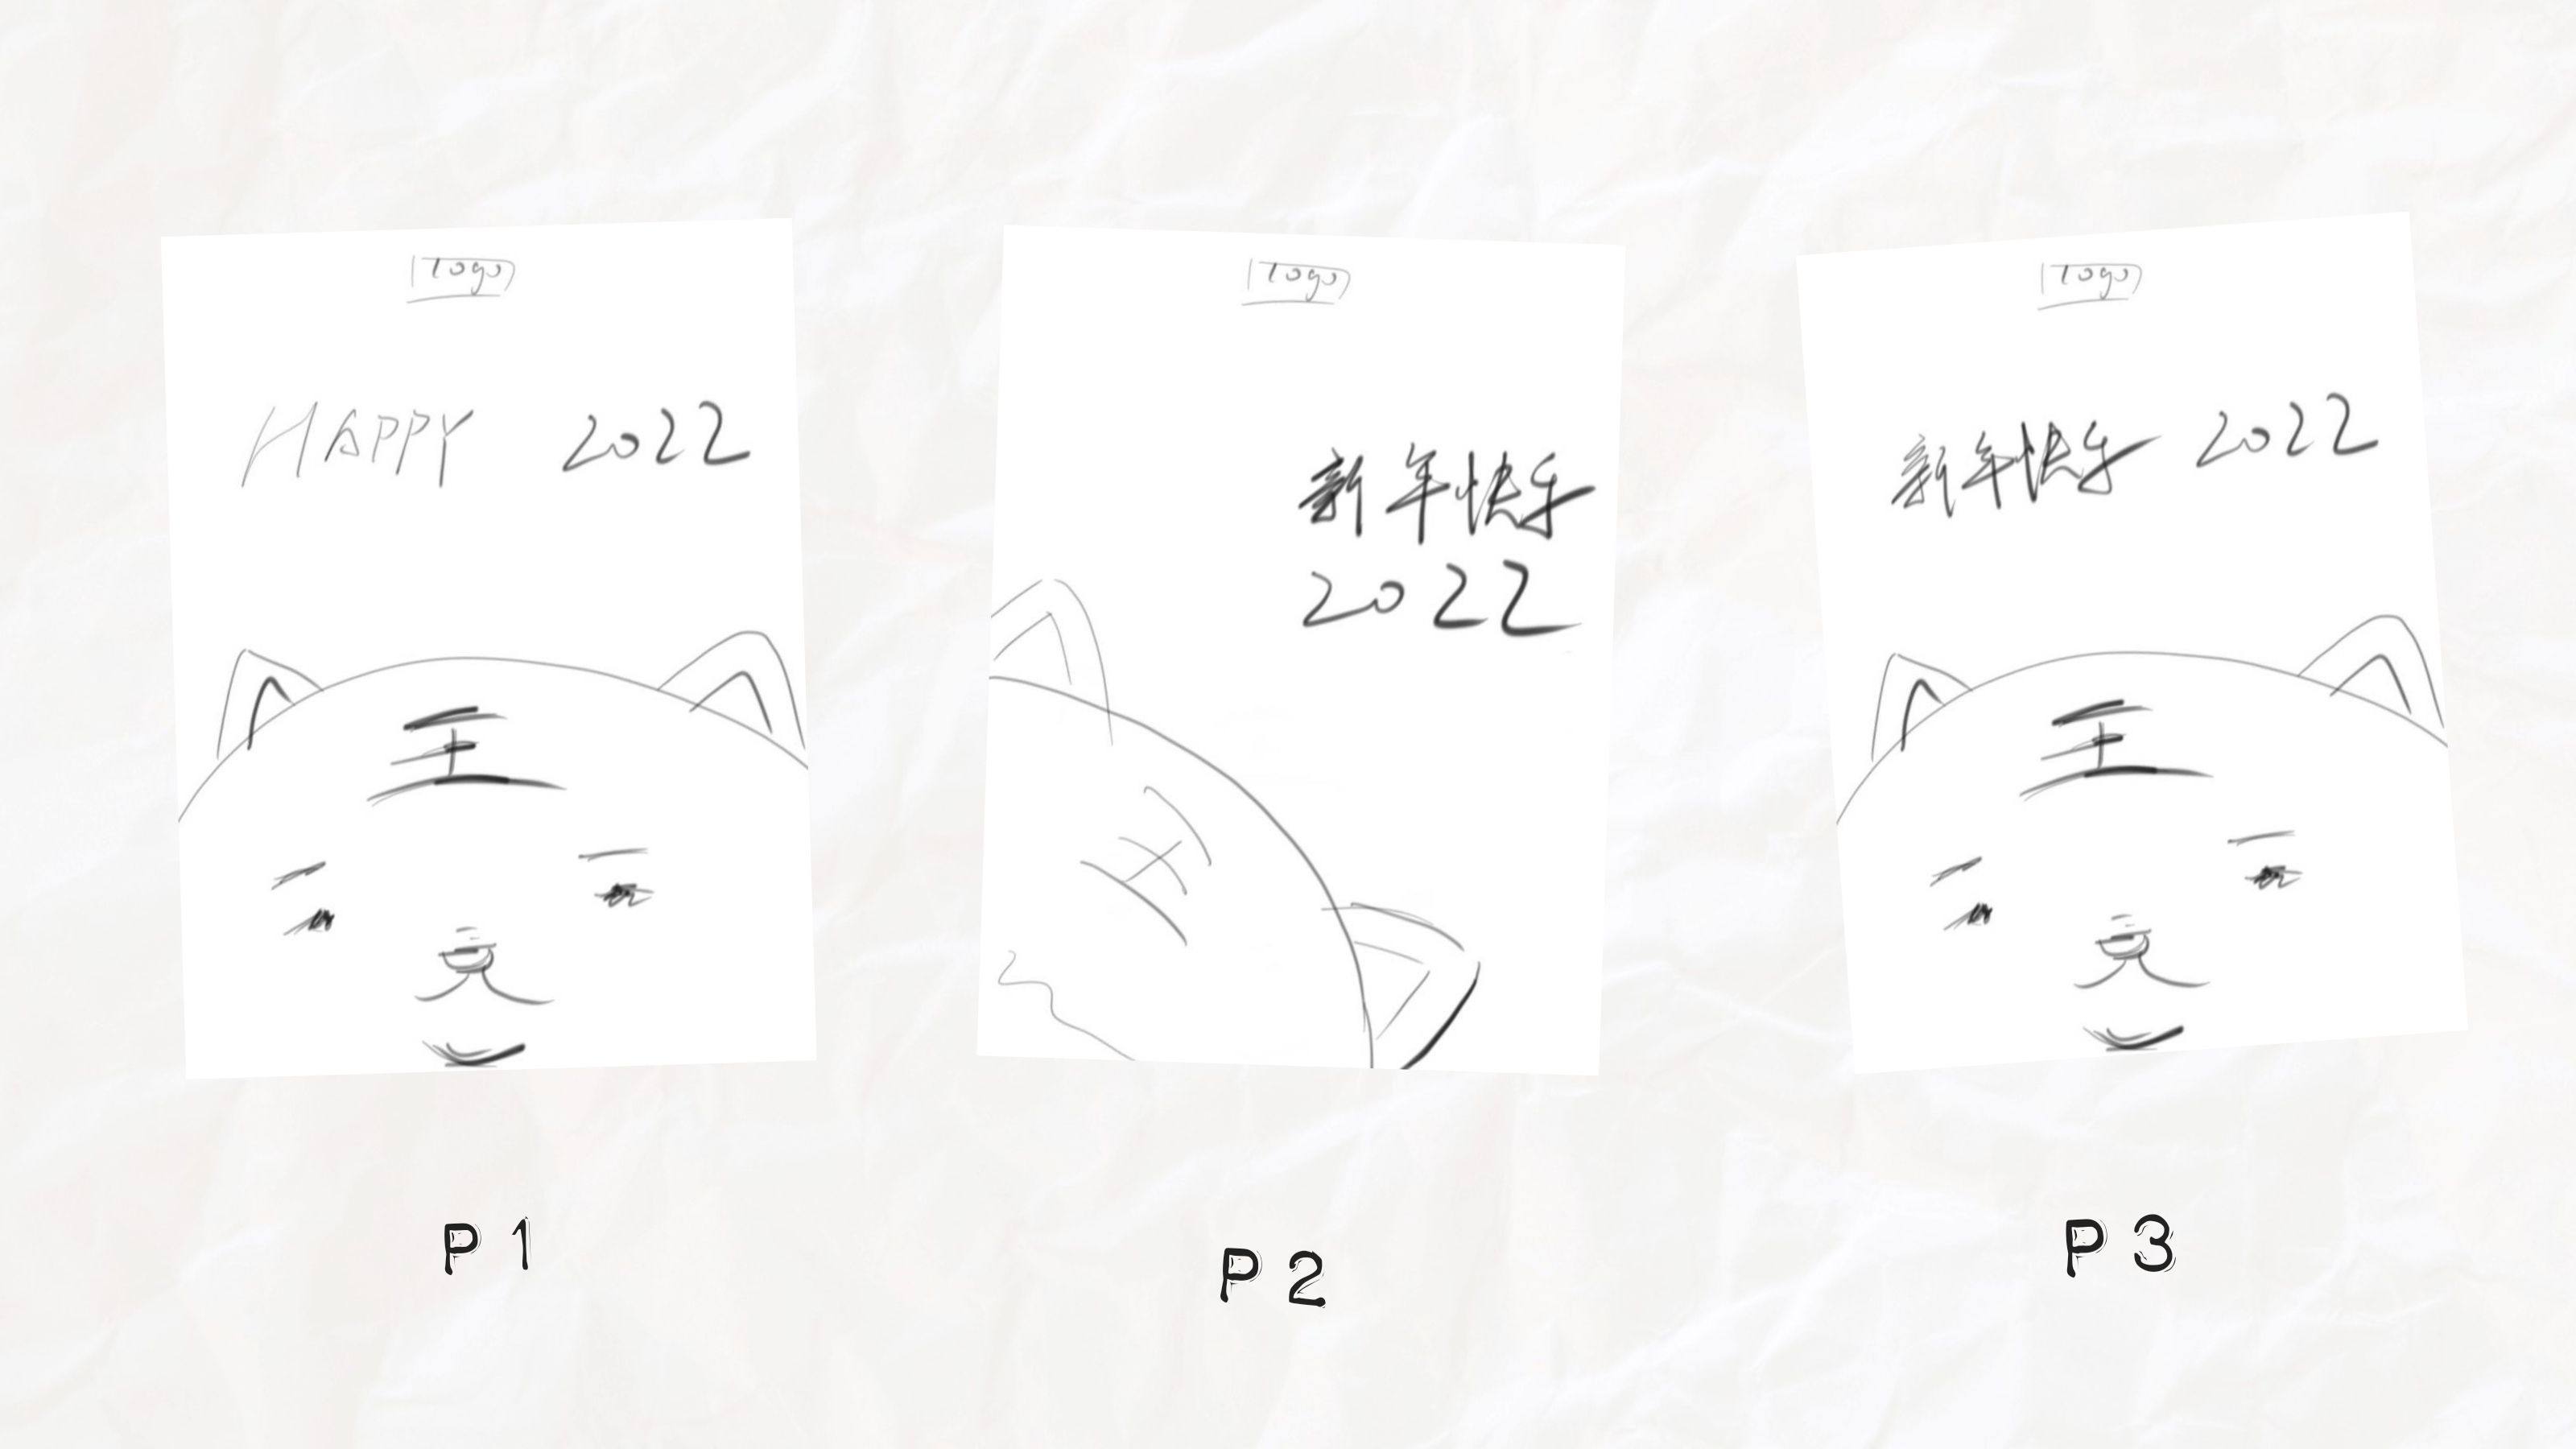 logo
HAPPY 2022
王
P 1
logo
新年快乐
2022
王
P 2
logo
新年快乐 2022
王
P 3